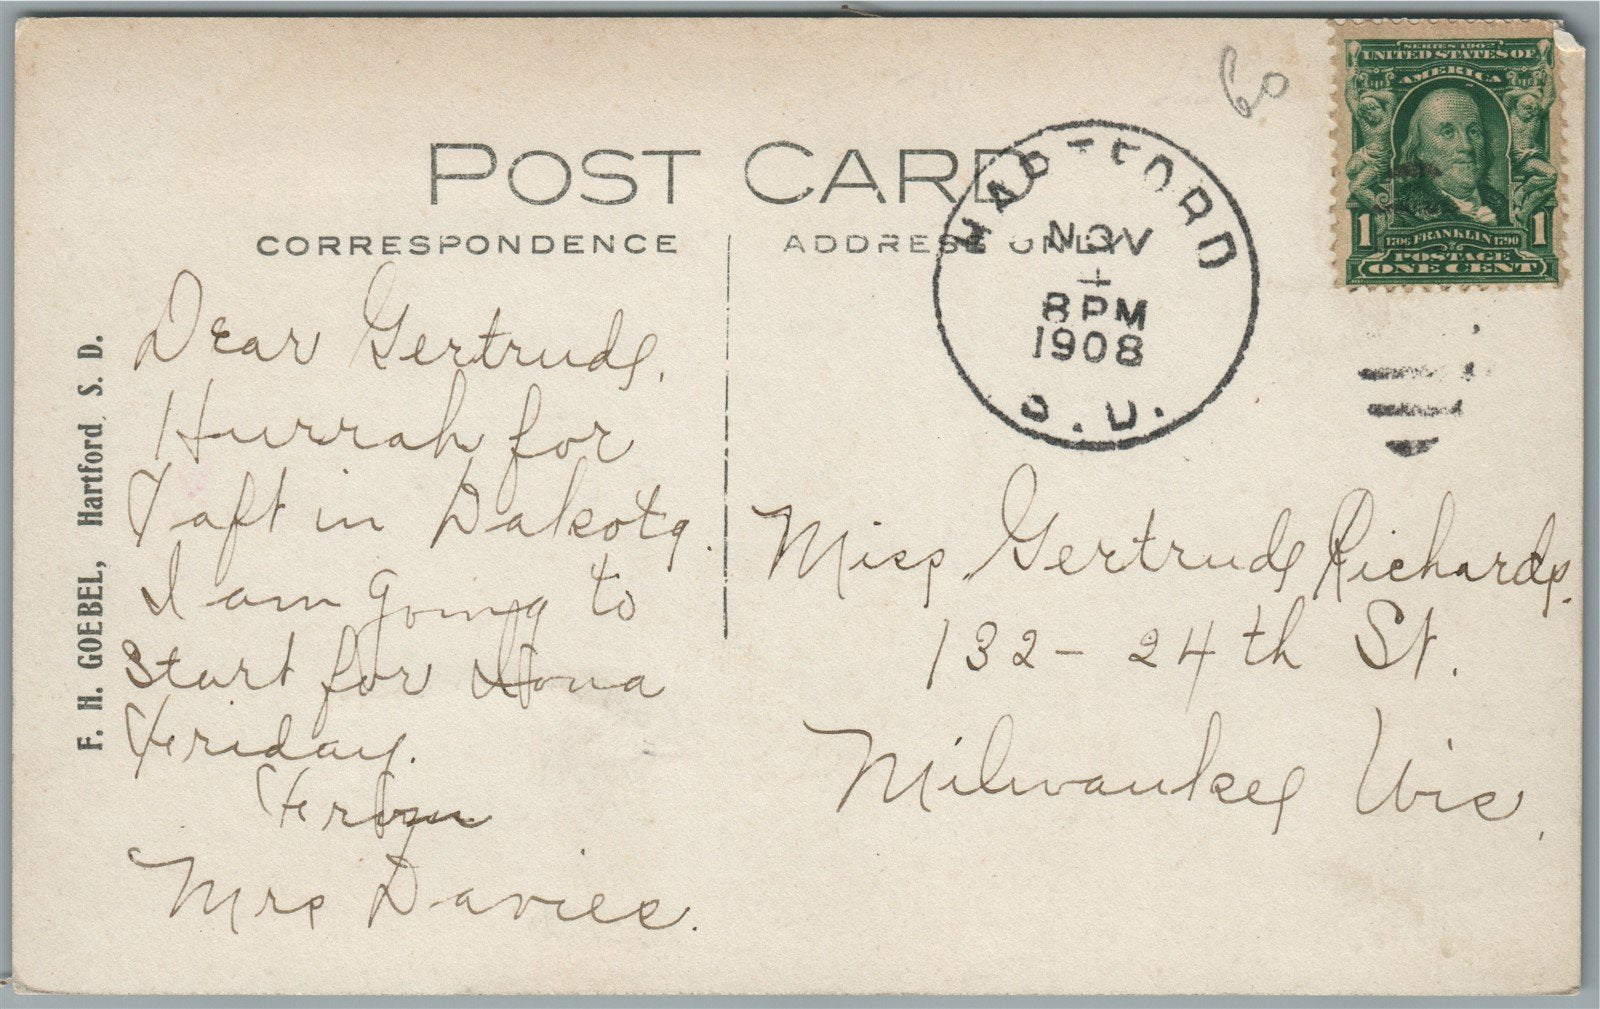 60
SERIES 1902
UNITED STATES OF
AMERICA
1 1
1706 FRANKLIN 1790
POSTAGE
ONE CENT
POST CARD
CORRESPONDENCE
ADDRESS ONLY
HARTFORD
NOV
8 PM
1908
S. D.
F. H. GOEBEL, Hartford, S. D.
Dear Gertrude,
Hurrah for
Taft in Dakota.
I am going to
start for Iowa
Friday.
From
Mrs Davies.
Miss Gertrude Richards.
132 - 24th St.
Milwaukee Wis.